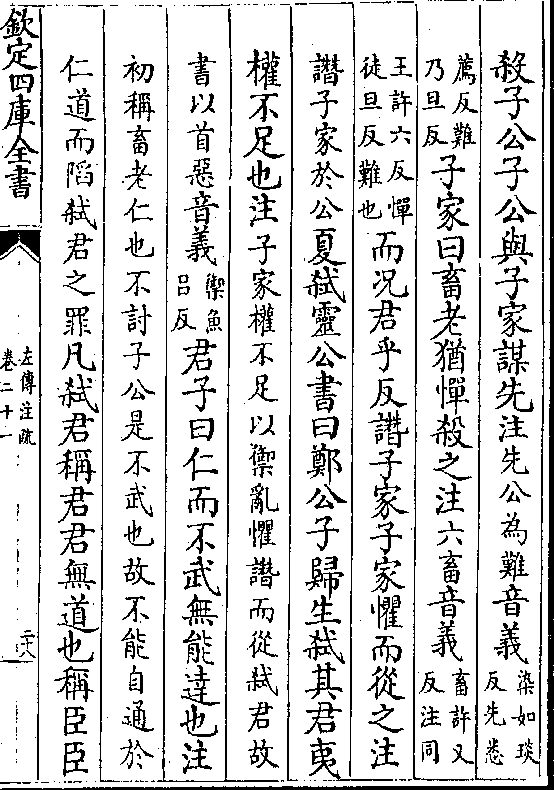 殺子公子公與子家謀先注先公為難音義染如琰反先悉
薦反難乃旦反子家曰畜老猶憚殺之注六畜音義畜許又反注同
王許六反憚徒旦反難也而況君乎反譖子家子家懼而從之注
譖子家於公夏弒靈公書曰鄭公子歸生弒其君夷
權不足也注子家權不足以禦亂懼譖而從弒君故
書以首惡音義禦魚呂反君子曰仁而不武無能達也注
初稱畜老仁也不討子公是不武也故不能自通於
仁道而陷弒君之罪凡弒君稱君君無道也稱臣臣
欽定四庫全書
左傳注疏
卷二十一
二六